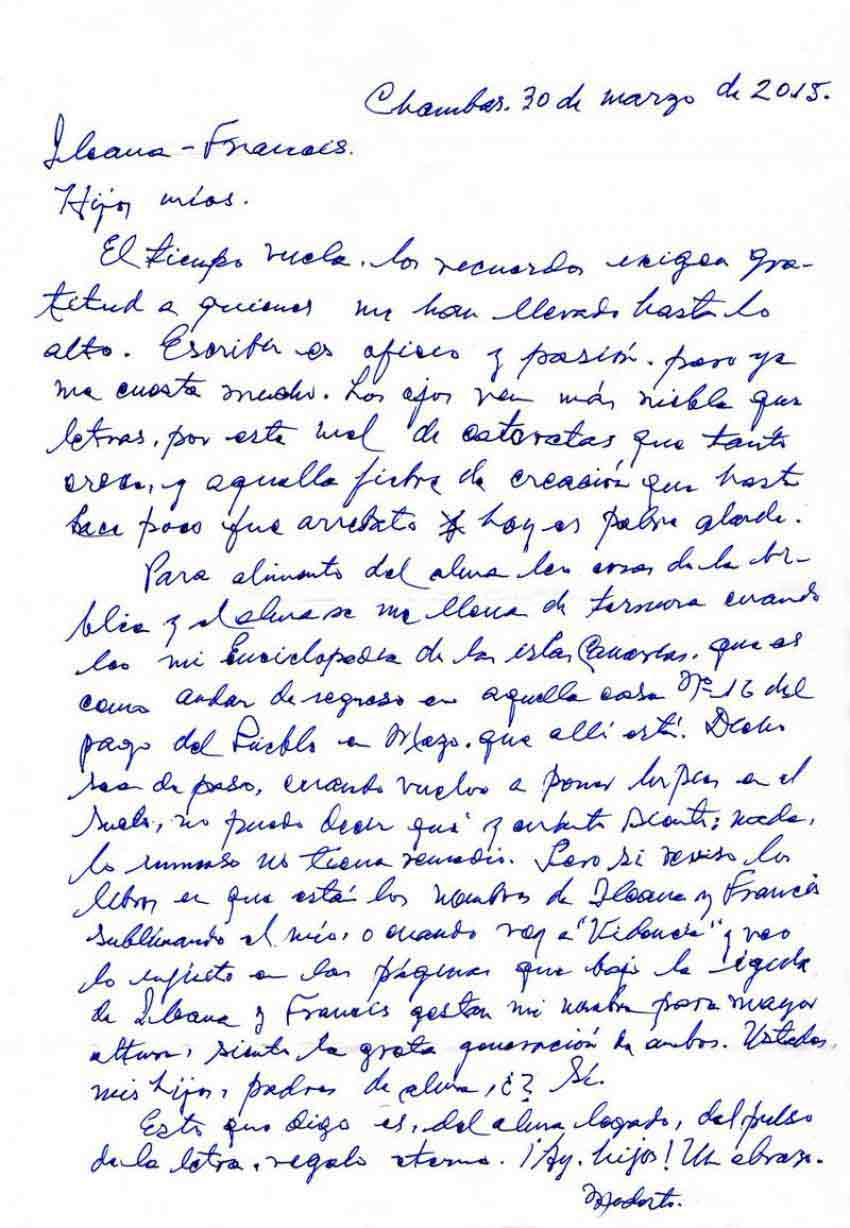 Chambas. 30 de marzo de 2015.
Ileana - Francis.
Hijos míos.
El tiempo vuela. los recuerdos exigen gra-
titud a quienes me han llevado hasta lo
alto. Escribir es oficio y pasión. pero ya
me cuesta mucho. Los ojos ven más niebla que
letras, por este mal de cataratas que tanto
crece, y aquella fiebre de creación que hasta
hace poco fue arrebato hoy es pobre alarde.
Para alimento del alma leo cosas de la bi-
blia y el alma se me llena de ternura cuando
leo mi Enciclopedia de las islas Canarias, que es
como andar de regreso en aquella casa Nº 16 del
pago del Pueblo en Mazo, que allí está. Dicho
sea de paso, cuando vuelvo a poner los pies en el
suelo, no puedo decir qué y cuánto siento; nada,
lo inmenso no tiene remedio. Pero si reviso los
libros en que están los nombres de Ileana y Francis
sublimando el mío, o cuando voy a "Videncia" y veo
lo en las páginas que bajo la égida
de Ileana y Francis gestan mi nombre para mayor
altura, siento la grata generación de ambos. Ustedes,
mis hijos, padres de alma, ¿? Sí.
Esto que digo es, del alma legado, del pulso
de la letra, regalo eterno. ¡Ay, hijos! Un abrazo.
Modesto.